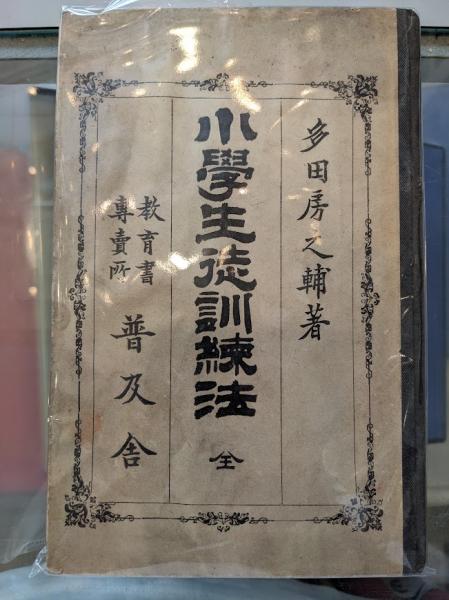 多田房之輔著
小學生徒訓練法 全
教育書
專賣所
普及舎